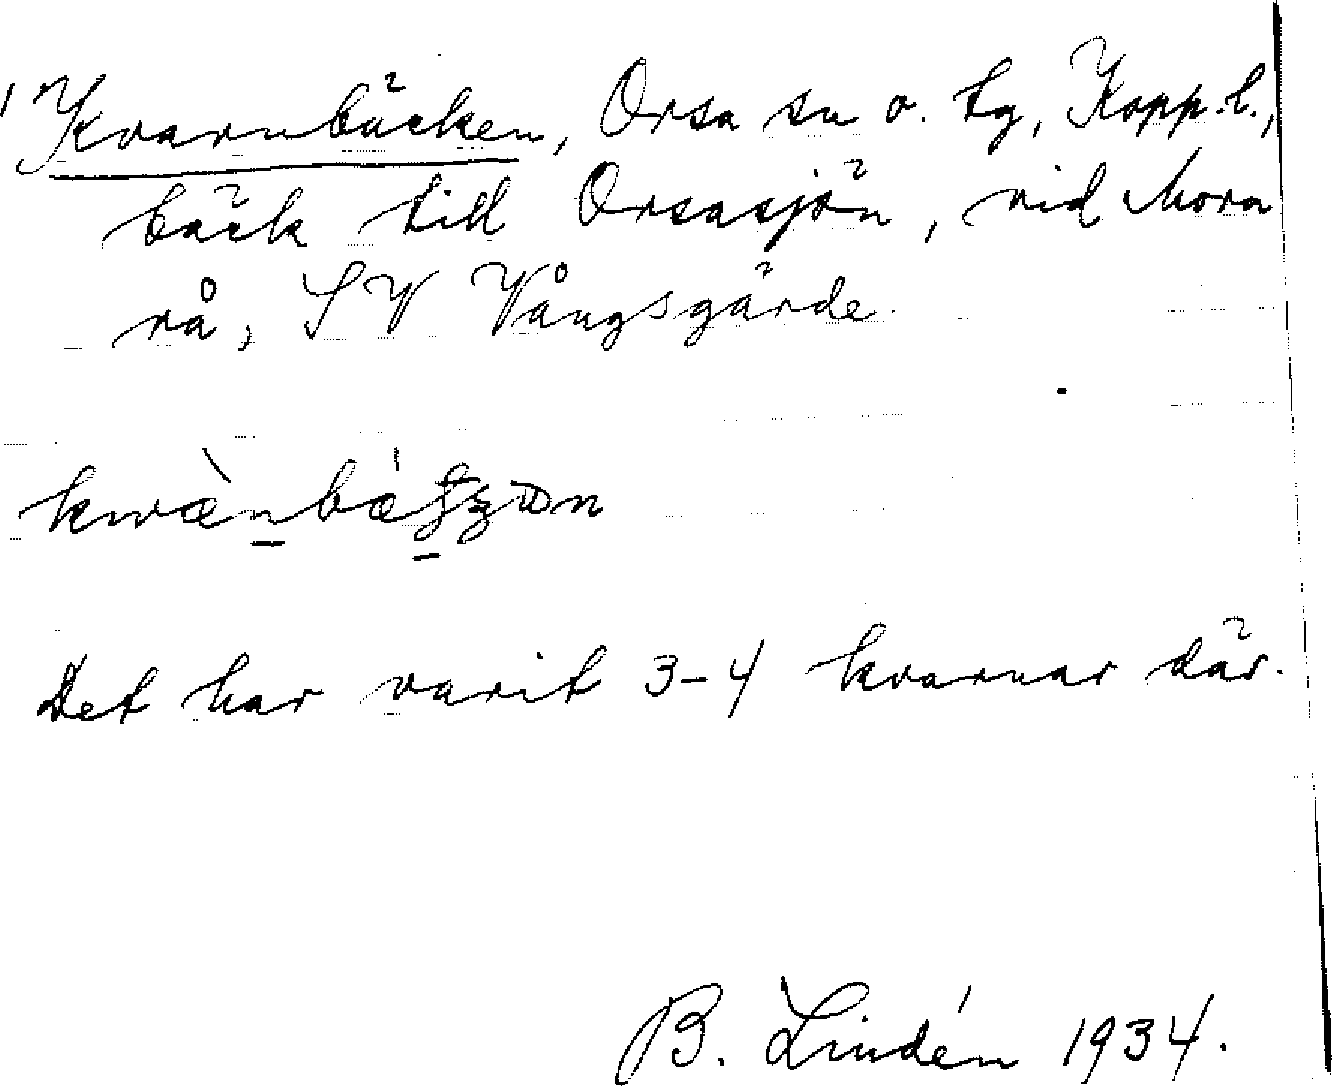 Kvarnbäcken, Orsa sn o. tg, Kopp. l.,
bäck till Orsasjön, vid Mora
rå, SV Vångsgärde.
Det har varit 3-4 kvarnar där.
B. Lindén 1934.